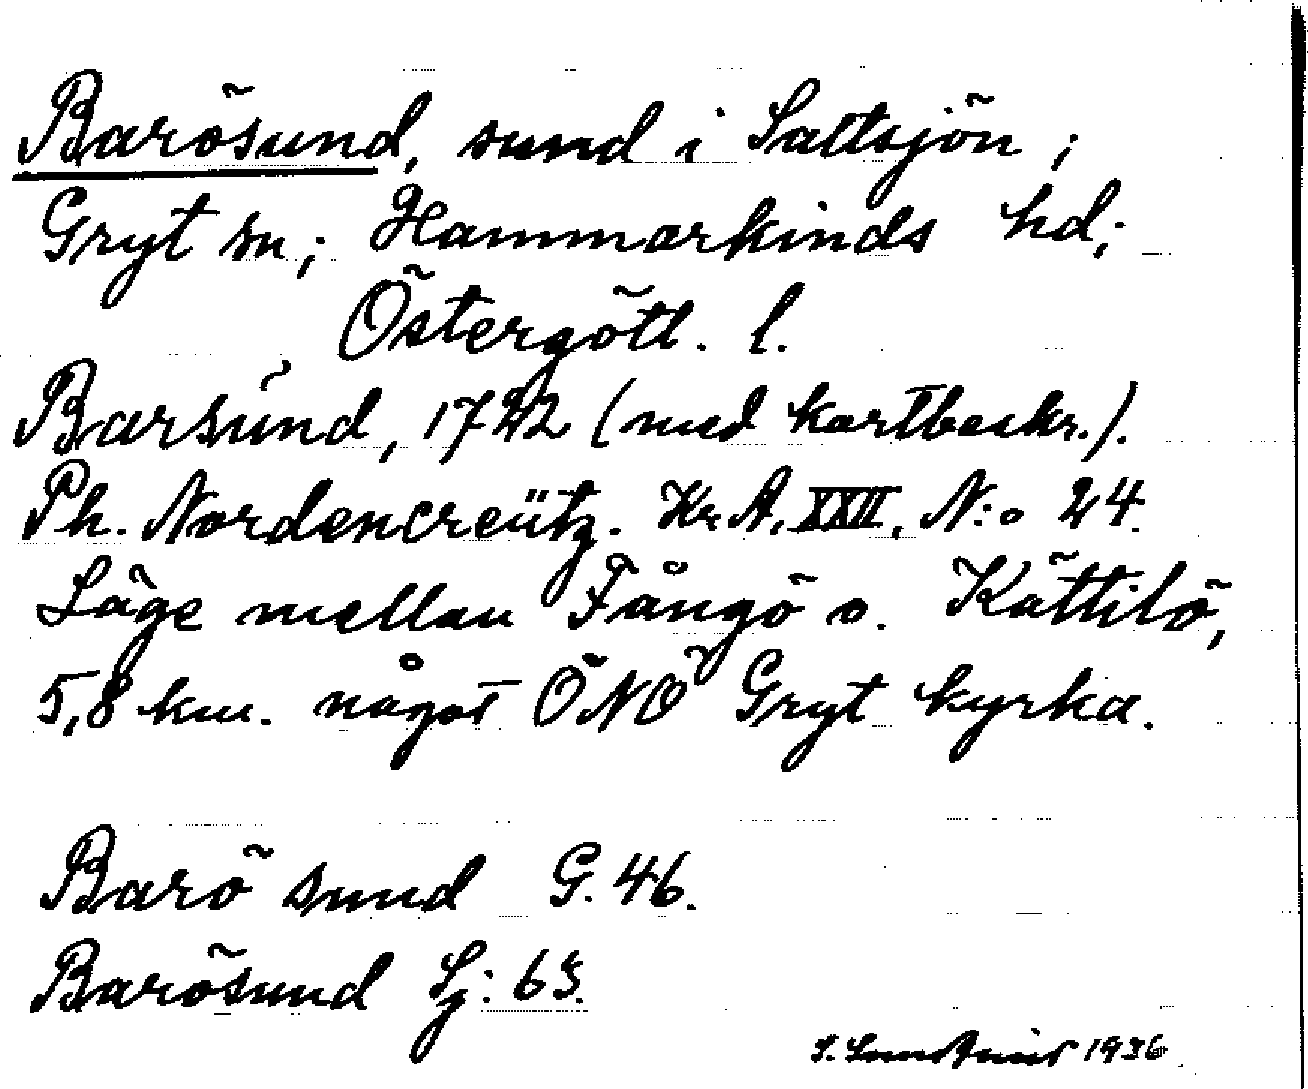 Barösund, sund i Saltsjön;
Gryt sn; Hammarkinds hd;
Östergötl. l.
Barsund, 1722 (med kartbeskr.).
Ph. Nordencreütz. Kr A, XXII, N:o 24.
Läge mellan Fångö o. Kättilö,
5,8 km. något ÖNÖ Gryt kyrka.
Barö sund G. 46.
Barösund Sj: 63.
1936